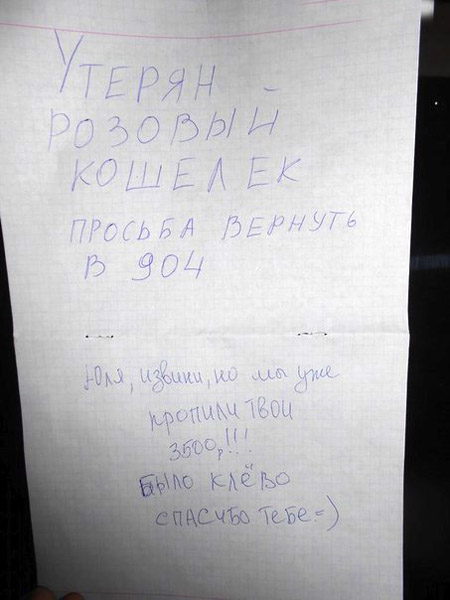 Утерян
розовый
кошелек
просьба вернуть
в 904
Юля, извини, но мы уже
пропили твои
3500р!!!
Было клёво
спасибо тебе =)